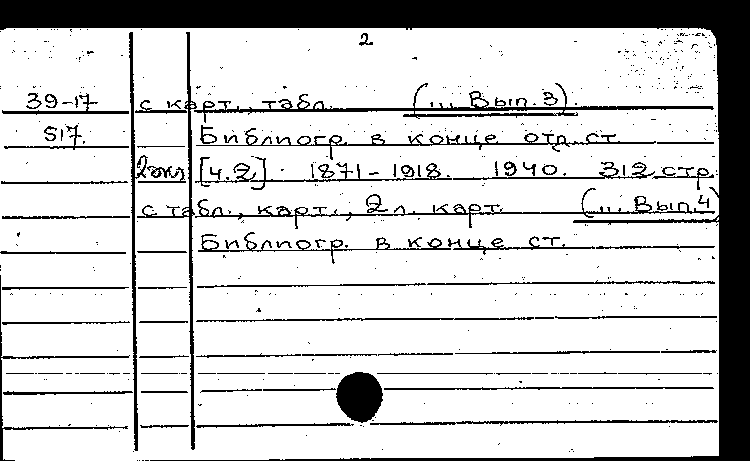 2
39-17 с карт., табл. (... Вып. 3).
517. Библиогр. в конце отд. ст.
2экл [ч. 2]. 1871-1918. 1940. 312 стр.
с табл., карт., 2 л. карт. (... Вып. 4)
Библиогр. в конце ст.